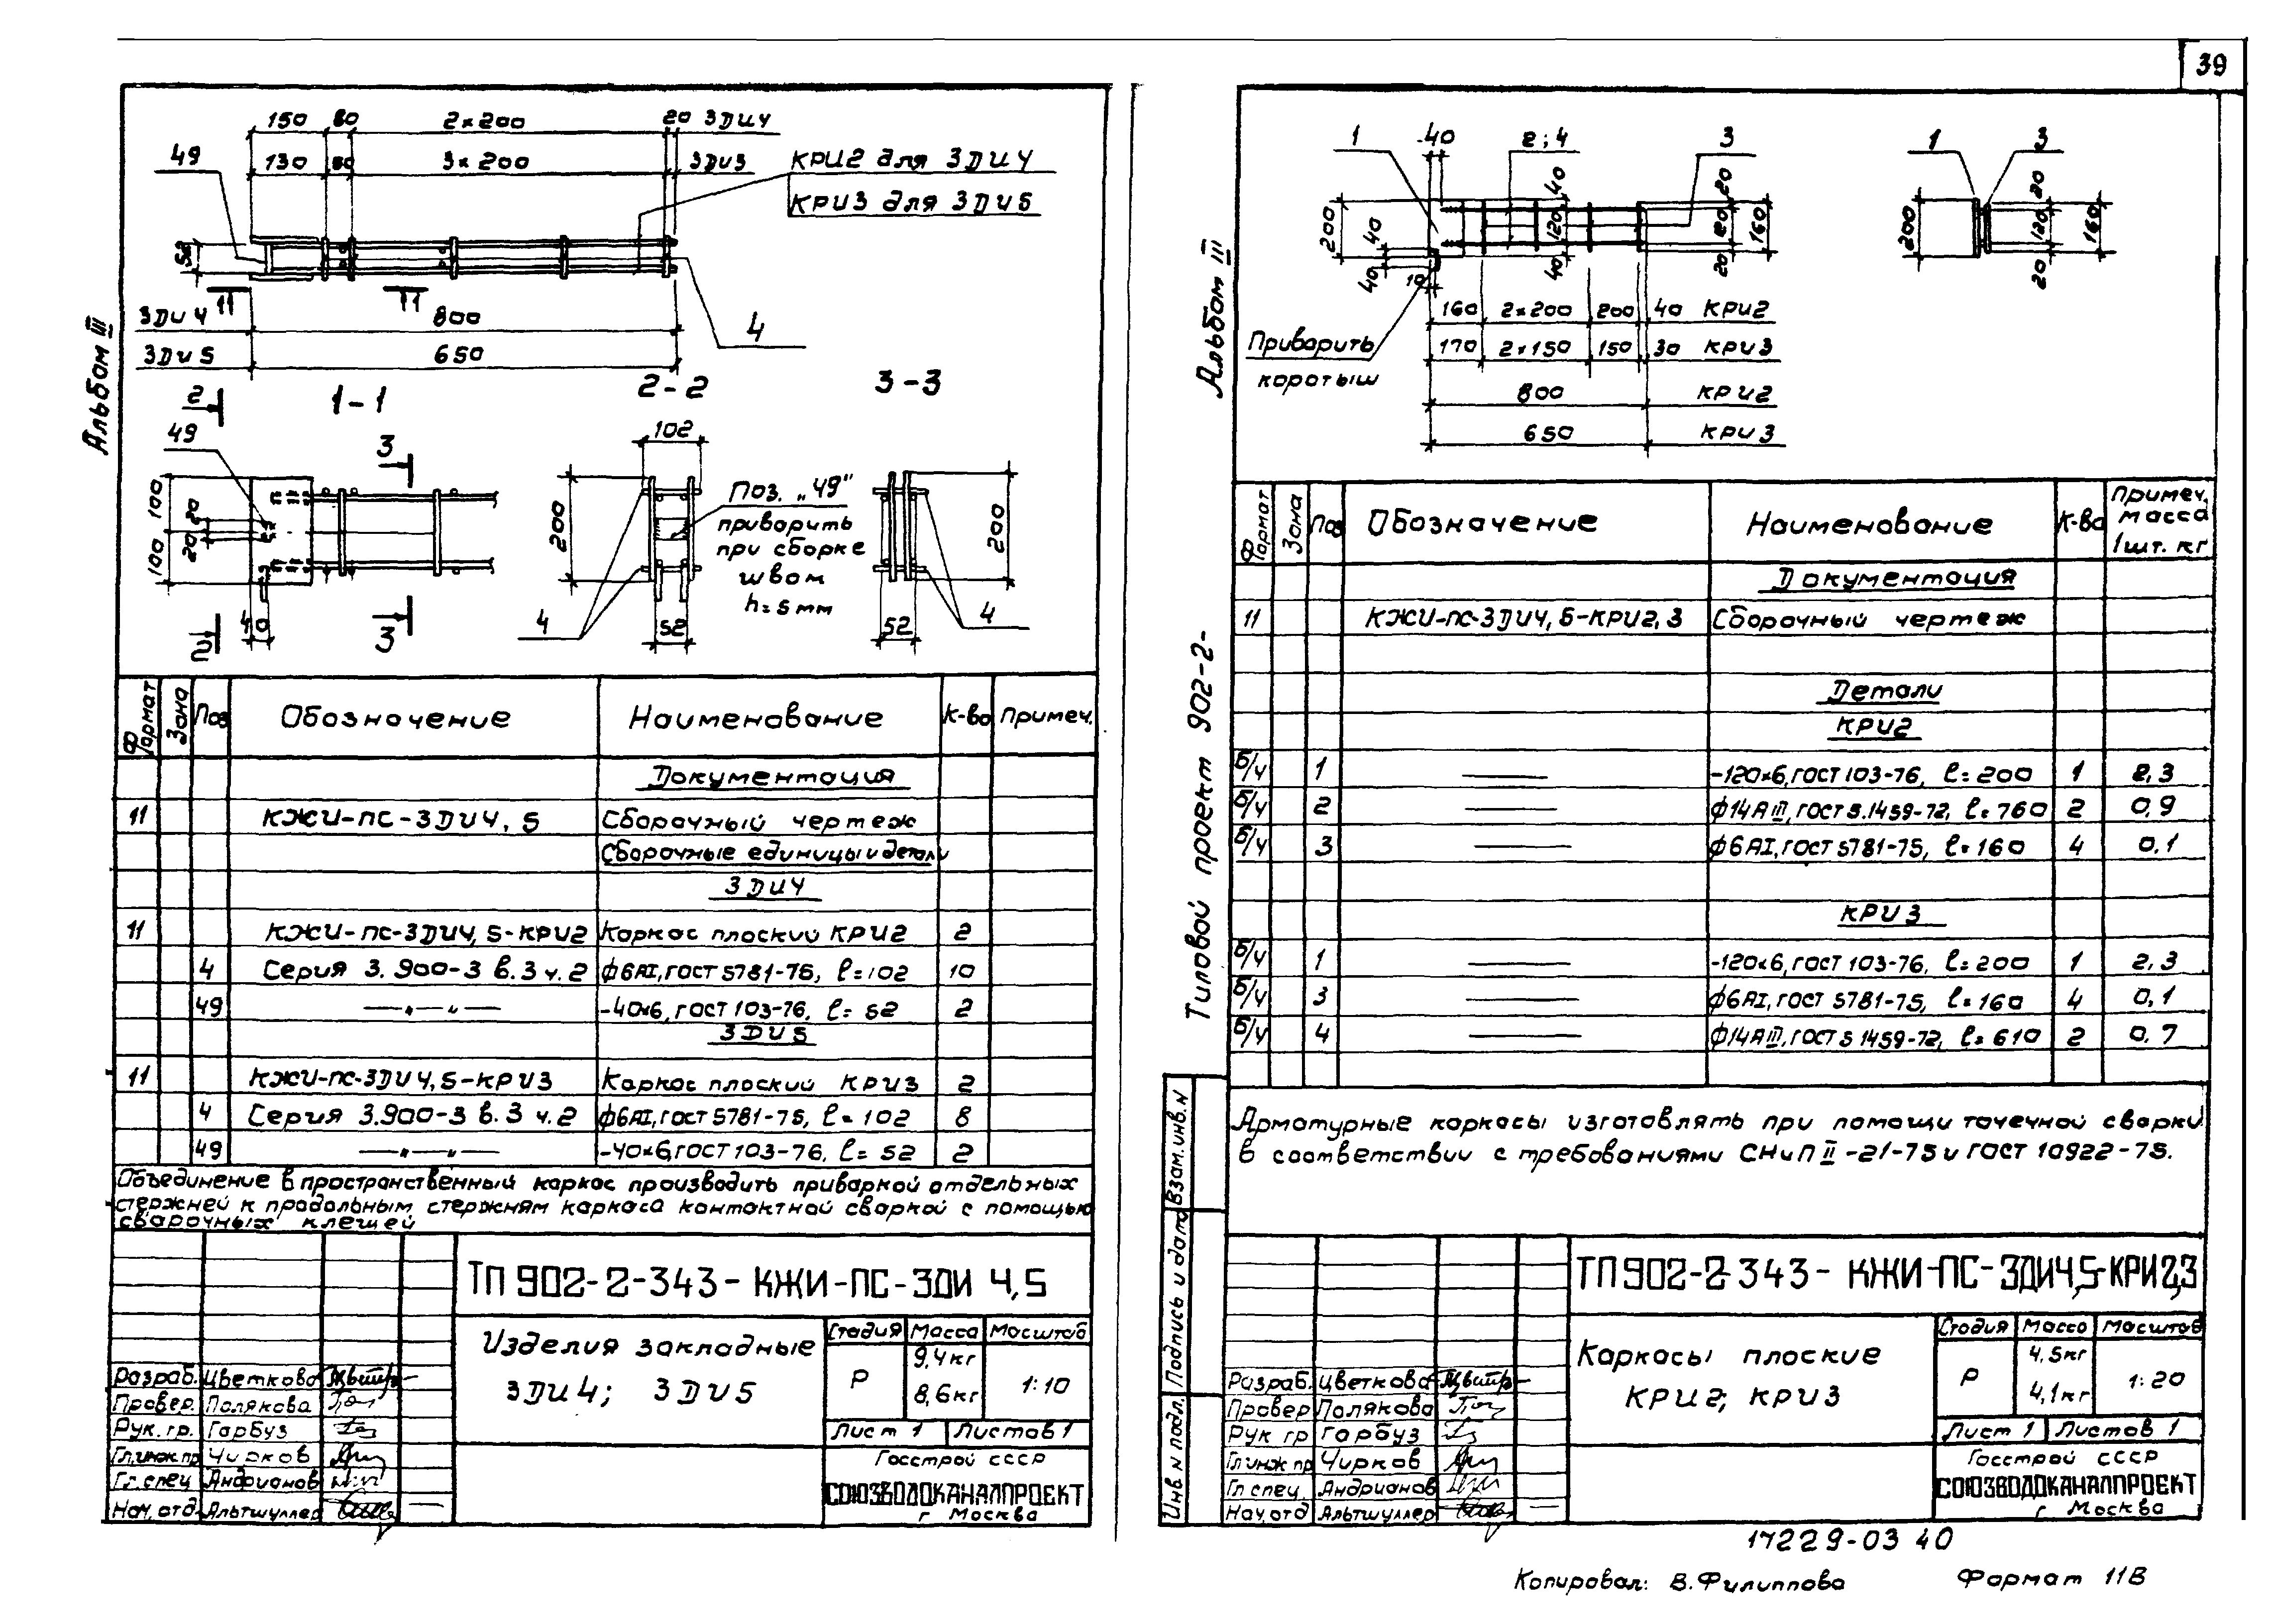 39
Альбом III
150 80 2×200 20 ЗДИ4
49 130 80 3×200 ЗДИ5
КРИ2 для ЗДИ4
КРИ3 для ЗДИ5
52
1 1
ЗДИ4 800
4
ЗДИ5 650
2 1-1 2-2 3-3
49 3 102
100 100 20 20
40
2 3
200
Поз. „49”
приварить
при сборке
швом
h=5мм
4 52
200
52 4
Формат Зона Поз Обозначение Наименование К-во Примеч.
Документация
11 КЖИ-ПС-ЗДИ4,5 Сборочный чертеж
Сборочные единицы и детали
ЗДИ4
11 КЖИ-ПС-ЗДИ4,5-КРИ2 Каркас плоский КРИ2 2
4 Серия 3.900-3 в.3 ч.2 ф6АI, ГОСТ 5781-75, ℓ=102 10
49 —"—"— -40×6, ГОСТ 103-76, ℓ=52 2
ЗДИ5
11 КЖИ-ПС-ЗДИ4,5-КРИ3 Каркас плоский КРИ3 2
4 Серия 3.900-3 в.3 ч.2 ф6АI, ГОСТ 5781-75, ℓ=102 8
49 —"—"— -40×6, ГОСТ 103-76, ℓ=52 2
Объединение в пространственный каркас производить приваркой отдельных
стержней к продольным стержням каркаса контактной сваркой с помощью
сварочных клещей
ТП 902-2-343-КЖИ-ПС-ЗДИ 4,5
Изделия закладные
ЗДИ4; ЗДИ5
Стадия Масса Масштаб
Р 9,4кг 8,6кг 1:10
Лист 1 Листов 1
Госстрой СССР
СОЮЗВОДОКАНАЛПРОЕКТ
г Москва
Разраб. Цветкова
Провер. Полякова
Рук. гр. Горбуз
Гл.инж.пр Чирков
Гл.спец Андрианов
Нач.отд Альтшуллер
Альбом III
Типовой проект 902-2-
1 40 2;4 3
200 40 40 10
40 120 40
20 120 20 160
1 3
200 20 120 20 160
Приварить
коротыш
160 2×200 200 40 КРИ2
170 2×150 150 30 КРИ3
800 КРИ2
650 КРИ3
Формат Зона Поз Обозначение Наименование К-во Примеч. масса 1шт. кг
Документация
11 КЖИ-ПС-ЗДИ4,5-КРИ2,3 Сборочный чертеж
Детали
КРИ2
б/ч 1 -120×6, ГОСТ 103-76, ℓ=200 1 2,3
б/ч 2 ф14АIII, ГОСТ 5.1459-72, ℓ=760 2 0,9
б/ч 3 ф6АI, ГОСТ 5781-75, ℓ=160 4 0,1
КРИ3
б/ч 1 -120×6, ГОСТ 103-76, ℓ=200 1 2,3
б/ч 3 ф6АI, ГОСТ 5781-75, ℓ=160 4 0,1
б/ч 4 ф14АIII, ГОСТ 5 1459-72, ℓ=610 2 0,7
Арматурные каркасы изготовлять при помощи точечной сварки
в соответствии с требованиями СНиП II-21-75 и ГОСТ 10922-75.
Взам.инв.N
Подпись и дата
Инв N подл.
ТП 902-2-343-КЖИ-ПС-ЗДИ4,5-КРИ2,3
Каркасы плоские
КРИ2; КРИ3
Стадия Масса Масштаб
Р 4,5кг 4,1кг 1:20
Лист 1 Листов 1
Госстрой СССР
СОЮЗВОДОКАНАЛПРОЕКТ
г. Москва
Разраб. Цветкова
Провер Полякова
Рук гр Горбуз
Гл.инж пр Чирков
Гл спец. Андрианов
Нач.отд Альтшуллер
17229-03 40
Копировал: В.Филиппова Формат 11В